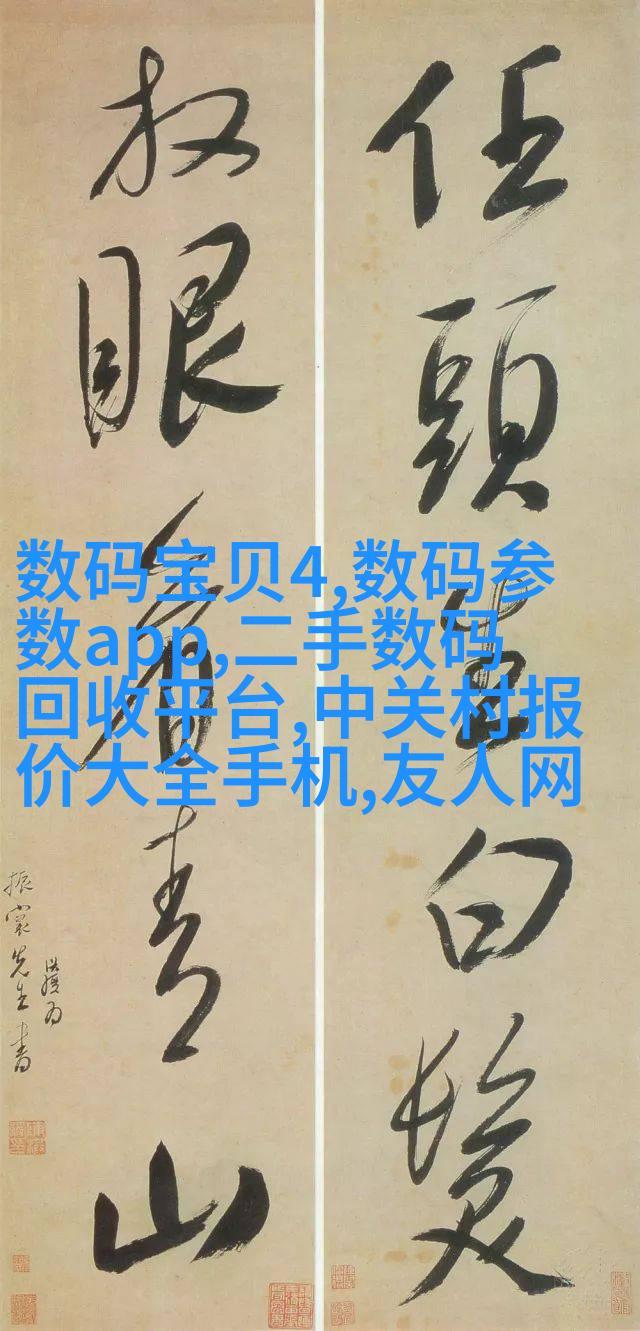 任頭生白髮
放眼看青山
数码宝贝4,数码参
数app,二手数码
回收平台,中关村报
价大全手机,友人网
先生書